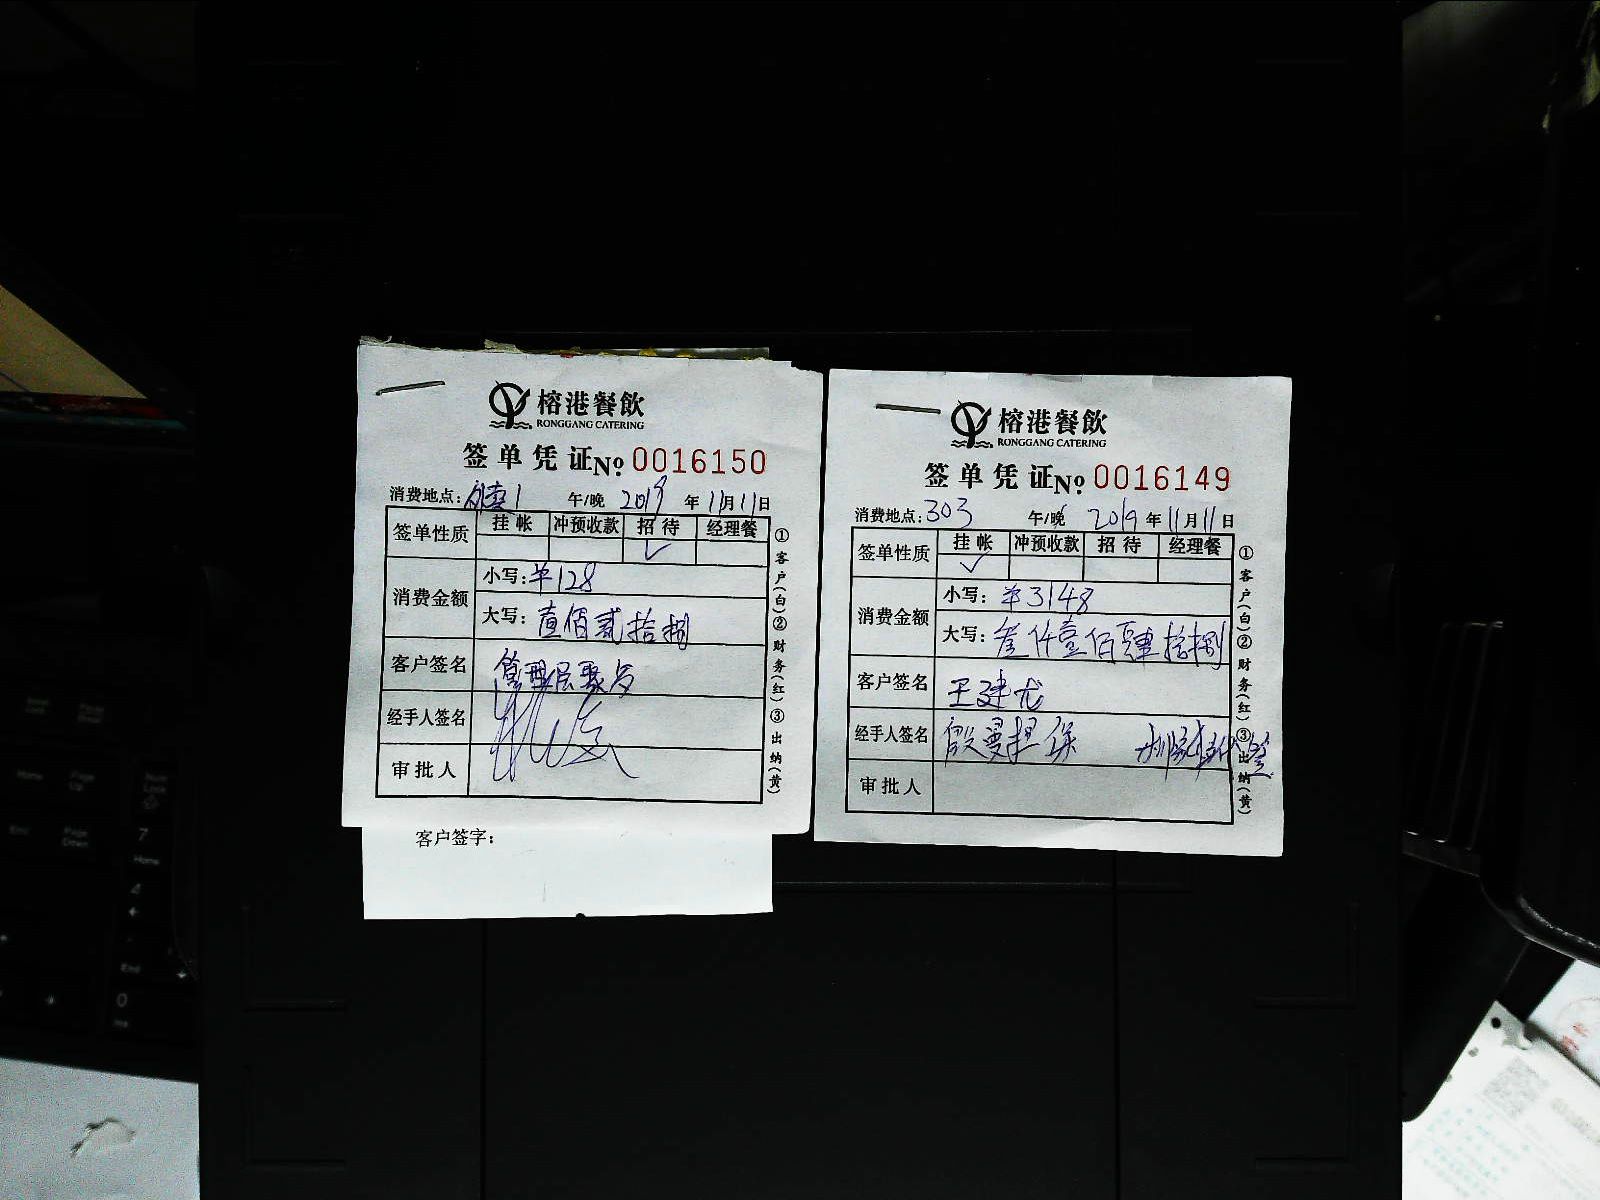 榕港餐飲
RONGGANG CATERING
签单凭证 No. 0016150
消费地点: 午/晚 2019年11月11日
签单性质 挂帐 冲预收款 招待 经理餐
✓
消费金额 小写: ¥128
大写: 壹佰贰拾捌
客户签名 管理层聚与
经手人签名
审批人
①客户(白)②财务(红)③出纳(黄)
客户签字:
榕港餐飲
RONGGANG CATERING
签单凭证 No. 0016149
消费地点: 303 午/晚 2019年11月11日
签单性质 挂帐 冲预收款 招待 经理餐
✓
消费金额 小写: ¥3148
大写: 叁仟壹佰肆拾捌
客户签名 王建龙
经手人签名 殷曼担保
审批人
①客户(白)②财务(红)③出纳(黄)
7
Home
4
End
0
Ins
Home
Page Up
End
Page Down